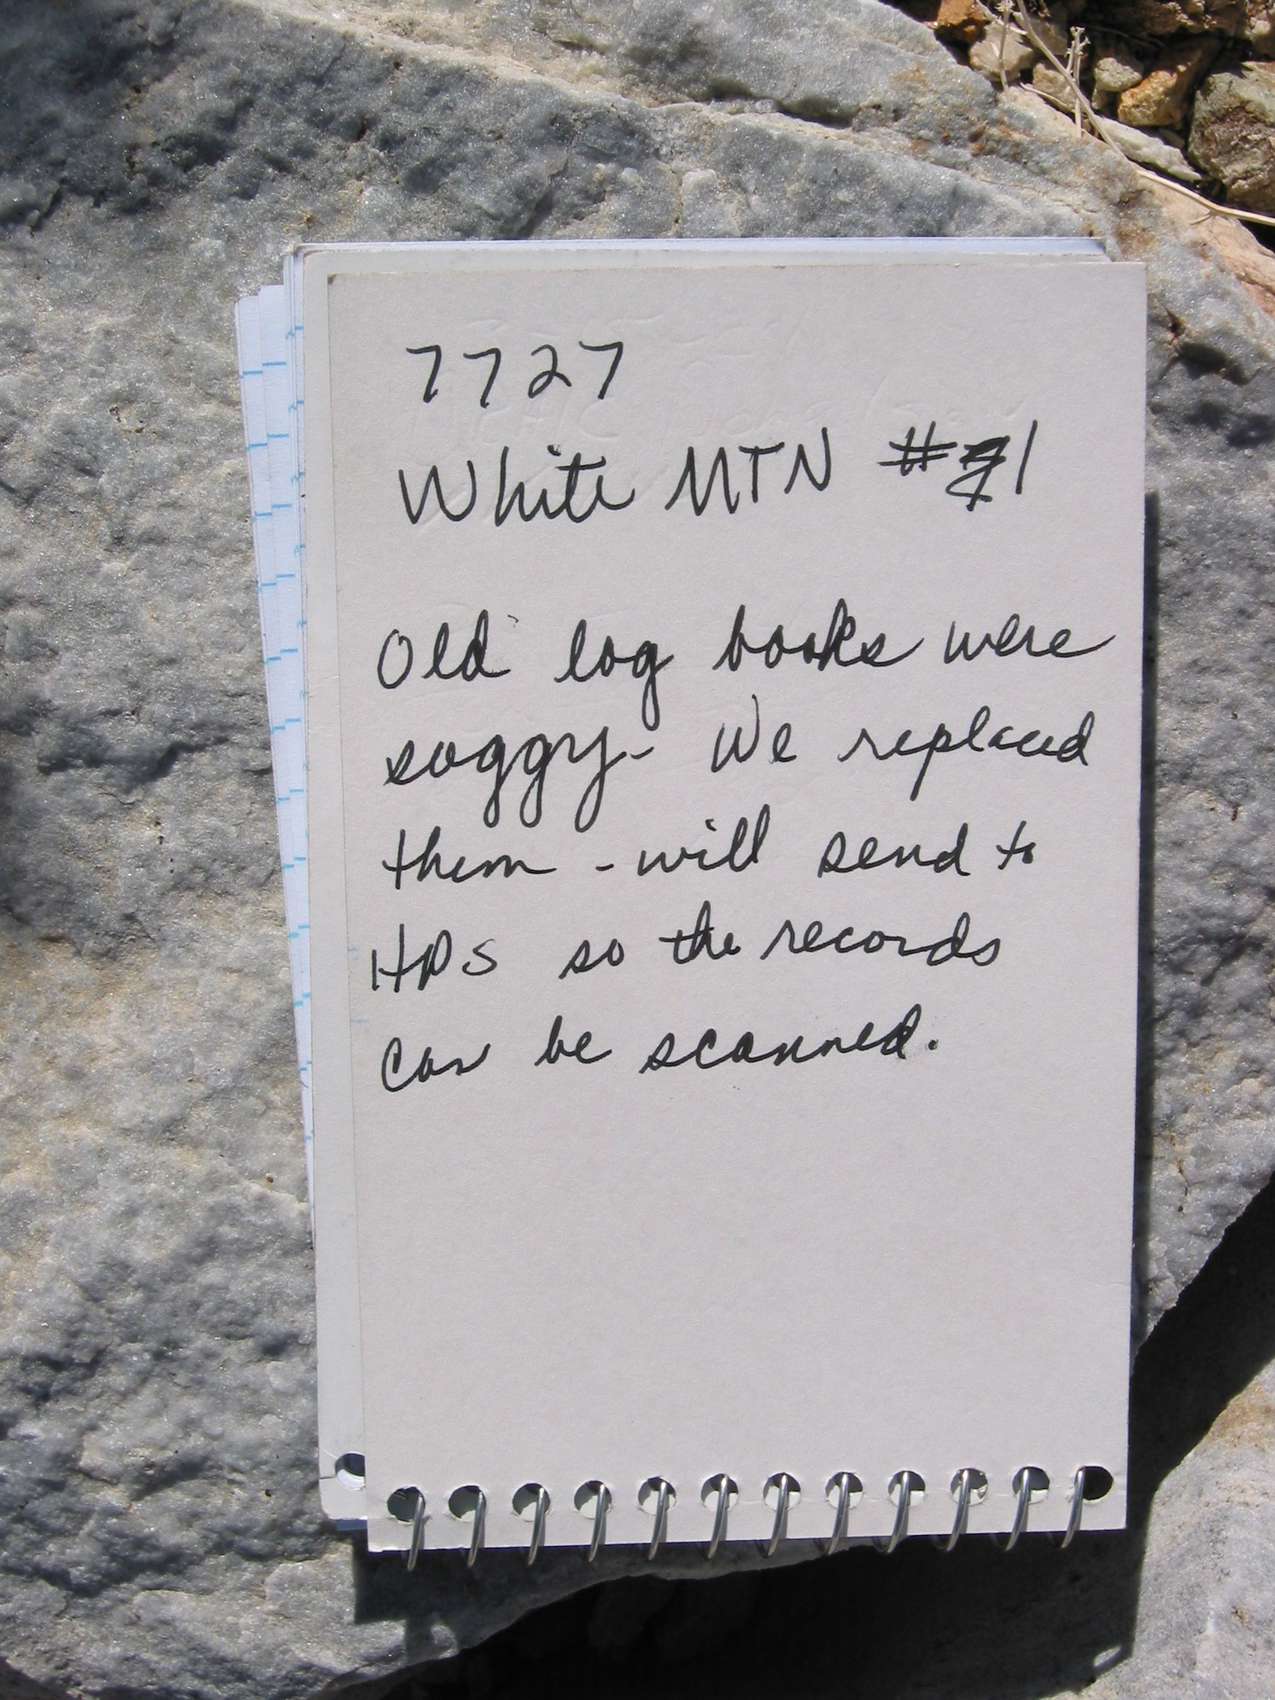 7727
White MTN #1
Old log books were
soggy- We replaced
them - will send to
HPS so the records
can be scanned.